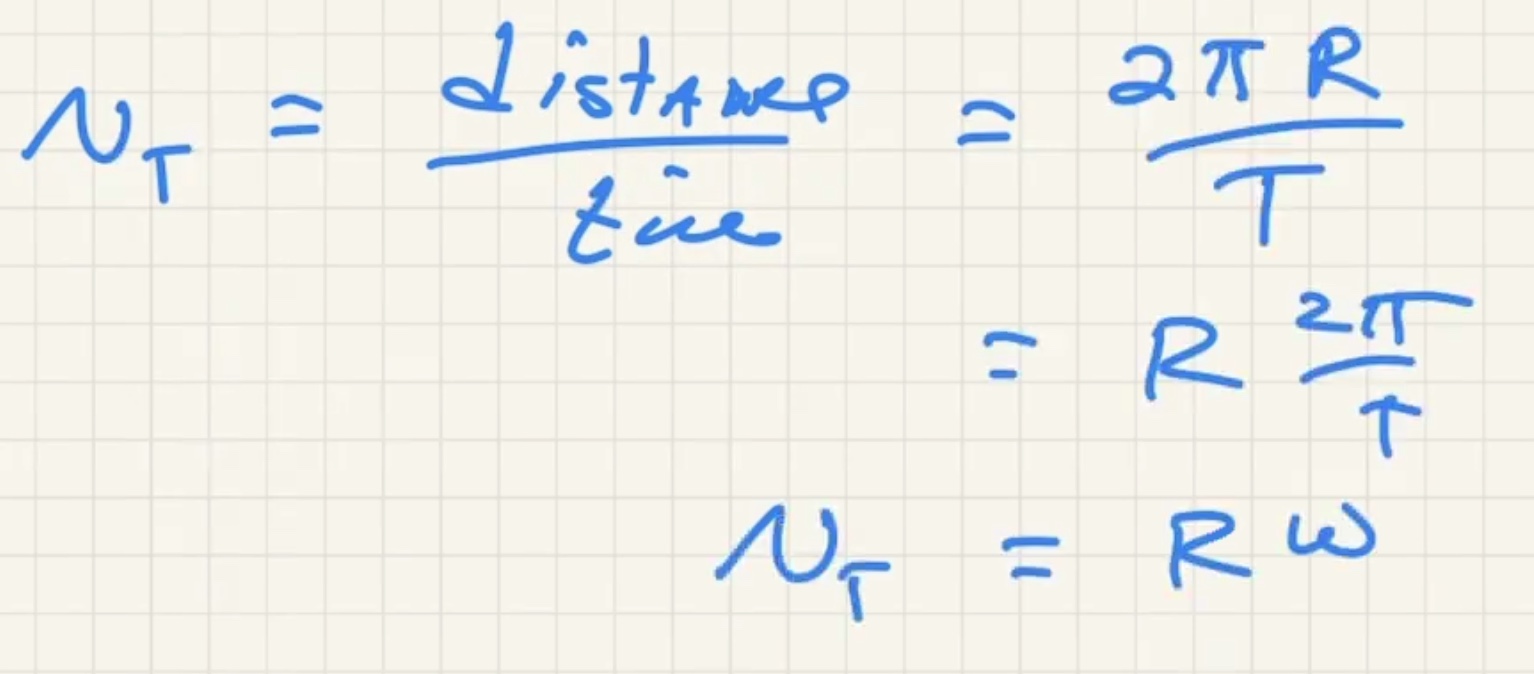 v_T = distance / time = 2πR / T
= R 2π / T
v_T = R ω